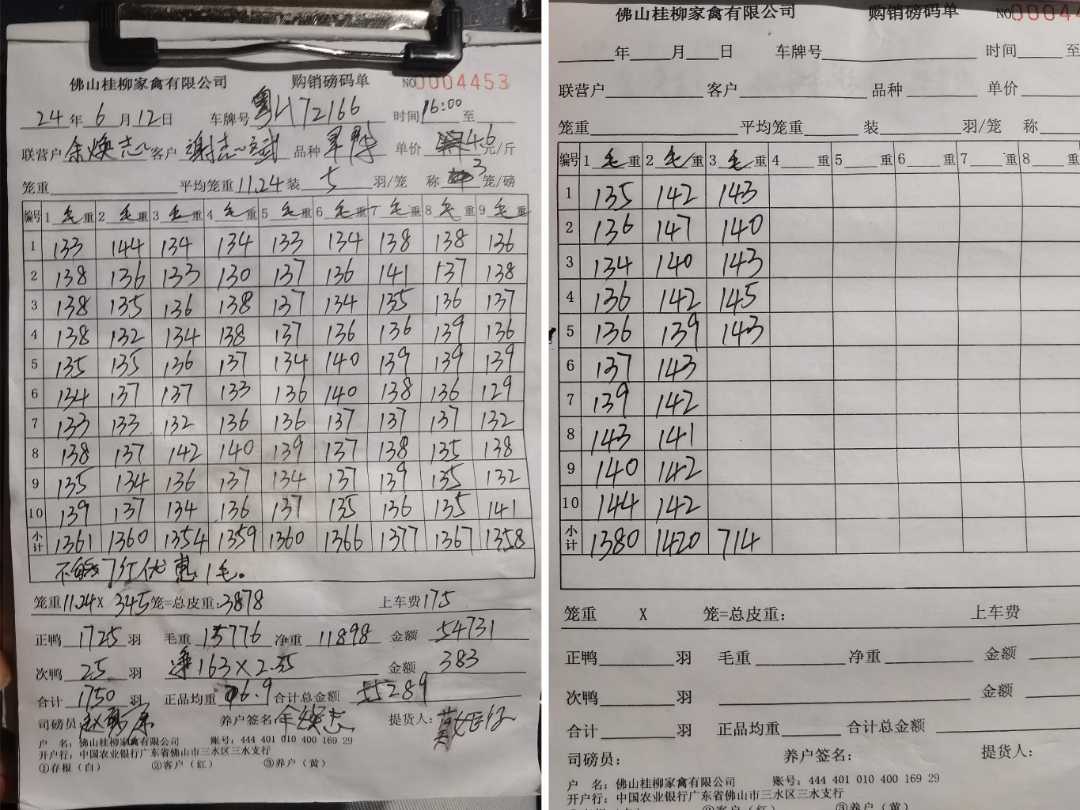 佛山桂柳家禽有限公司 购销磅码单 NO0004453
24年6月12日 车牌号 粤H72166 时间16:00至
联营户余焕志 客户谢志斌 品种 单价 4.6元/斤
笼重 平均笼重11.24装5羽/笼 称3笼/磅
编号 1毛重 2毛重 3毛重 4毛重 5毛重 6毛重 7毛重 8毛重 9毛重
1 133 144 134 134 133 134 138 138 136
2 138 136 133 130 137 136 141 137 138
3 138 135 136 138 137 134 135 136 137
4 138 132 134 138 137 136 136 139 136
5 135 135 136 137 134 140 139 139 139
6 134 137 137 133 136 140 138 136 129
7 133 133 132 136 136 137 137 137 132
8 138 137 142 140 139 137 138 135 138
9 135 134 136 137 134 137 139 135 132
10 139 137 134 136 137 135 136 135 141
小计 1361 1360 1354 1359 1360 1366 1377 1367 1358
优惠1毛。
笼重11.24X345笼=总皮重:3878 上车费175
正鸭1725羽 毛重15776 净重11898 金额54731
次鸭25羽 净163×2.35 金额383
合计1750羽 正品均重6.9 合计总金额55289
司磅员 养户签名:余焕志 提货人:
户 名:佛山桂柳家禽有限公司 账号:444 401 010 400 169 29
开户行:中国农业银行广东省佛山市三水区三水支行
①存根(白) ②客户(红) ③养户(黄)
佛山桂柳家禽有限公司 购销磅码单 NO00044
年 月 日 车牌号 时间 至
联营户 客户 品种 单价
笼重 平均笼重 装 羽/笼 称
编号 1毛重 2毛重 3毛重 4 重 5 重 6 重 7 重 8 重
1 135 142 143
2 136 147 140
3 134 140 143
4 136 142 145
5 136 139 143
6 137 143
7 139 142
8 143 141
9 140 142
10 144 142
小计 1380 1420 714
笼重 X 笼=总皮重: 上车费
正鸭 羽 毛重 净重 金额
次鸭 羽 金额
合计 羽 正品均重 合计总金额
司磅员: 养户签名: 提货人:
户 名:佛山桂柳家禽有限公司 账号:444 401 010 400 169 29
开户行:中国农业银行广东省佛山市三水区三水支行
②客户(红) ③养户(黄)